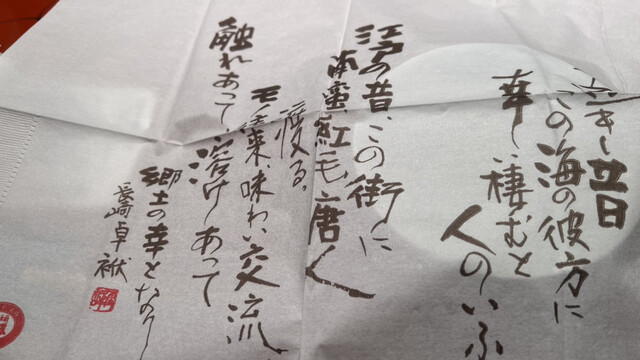 き昔日
この海の彼方に
幸い棲むと
人のいふ
江戸の昔、この街に
南蠻、紅毛、唐人
渡る。
モノ来、味わい交流
触れあって、溶けあって
郷土の幸となりし
長崎卓袱